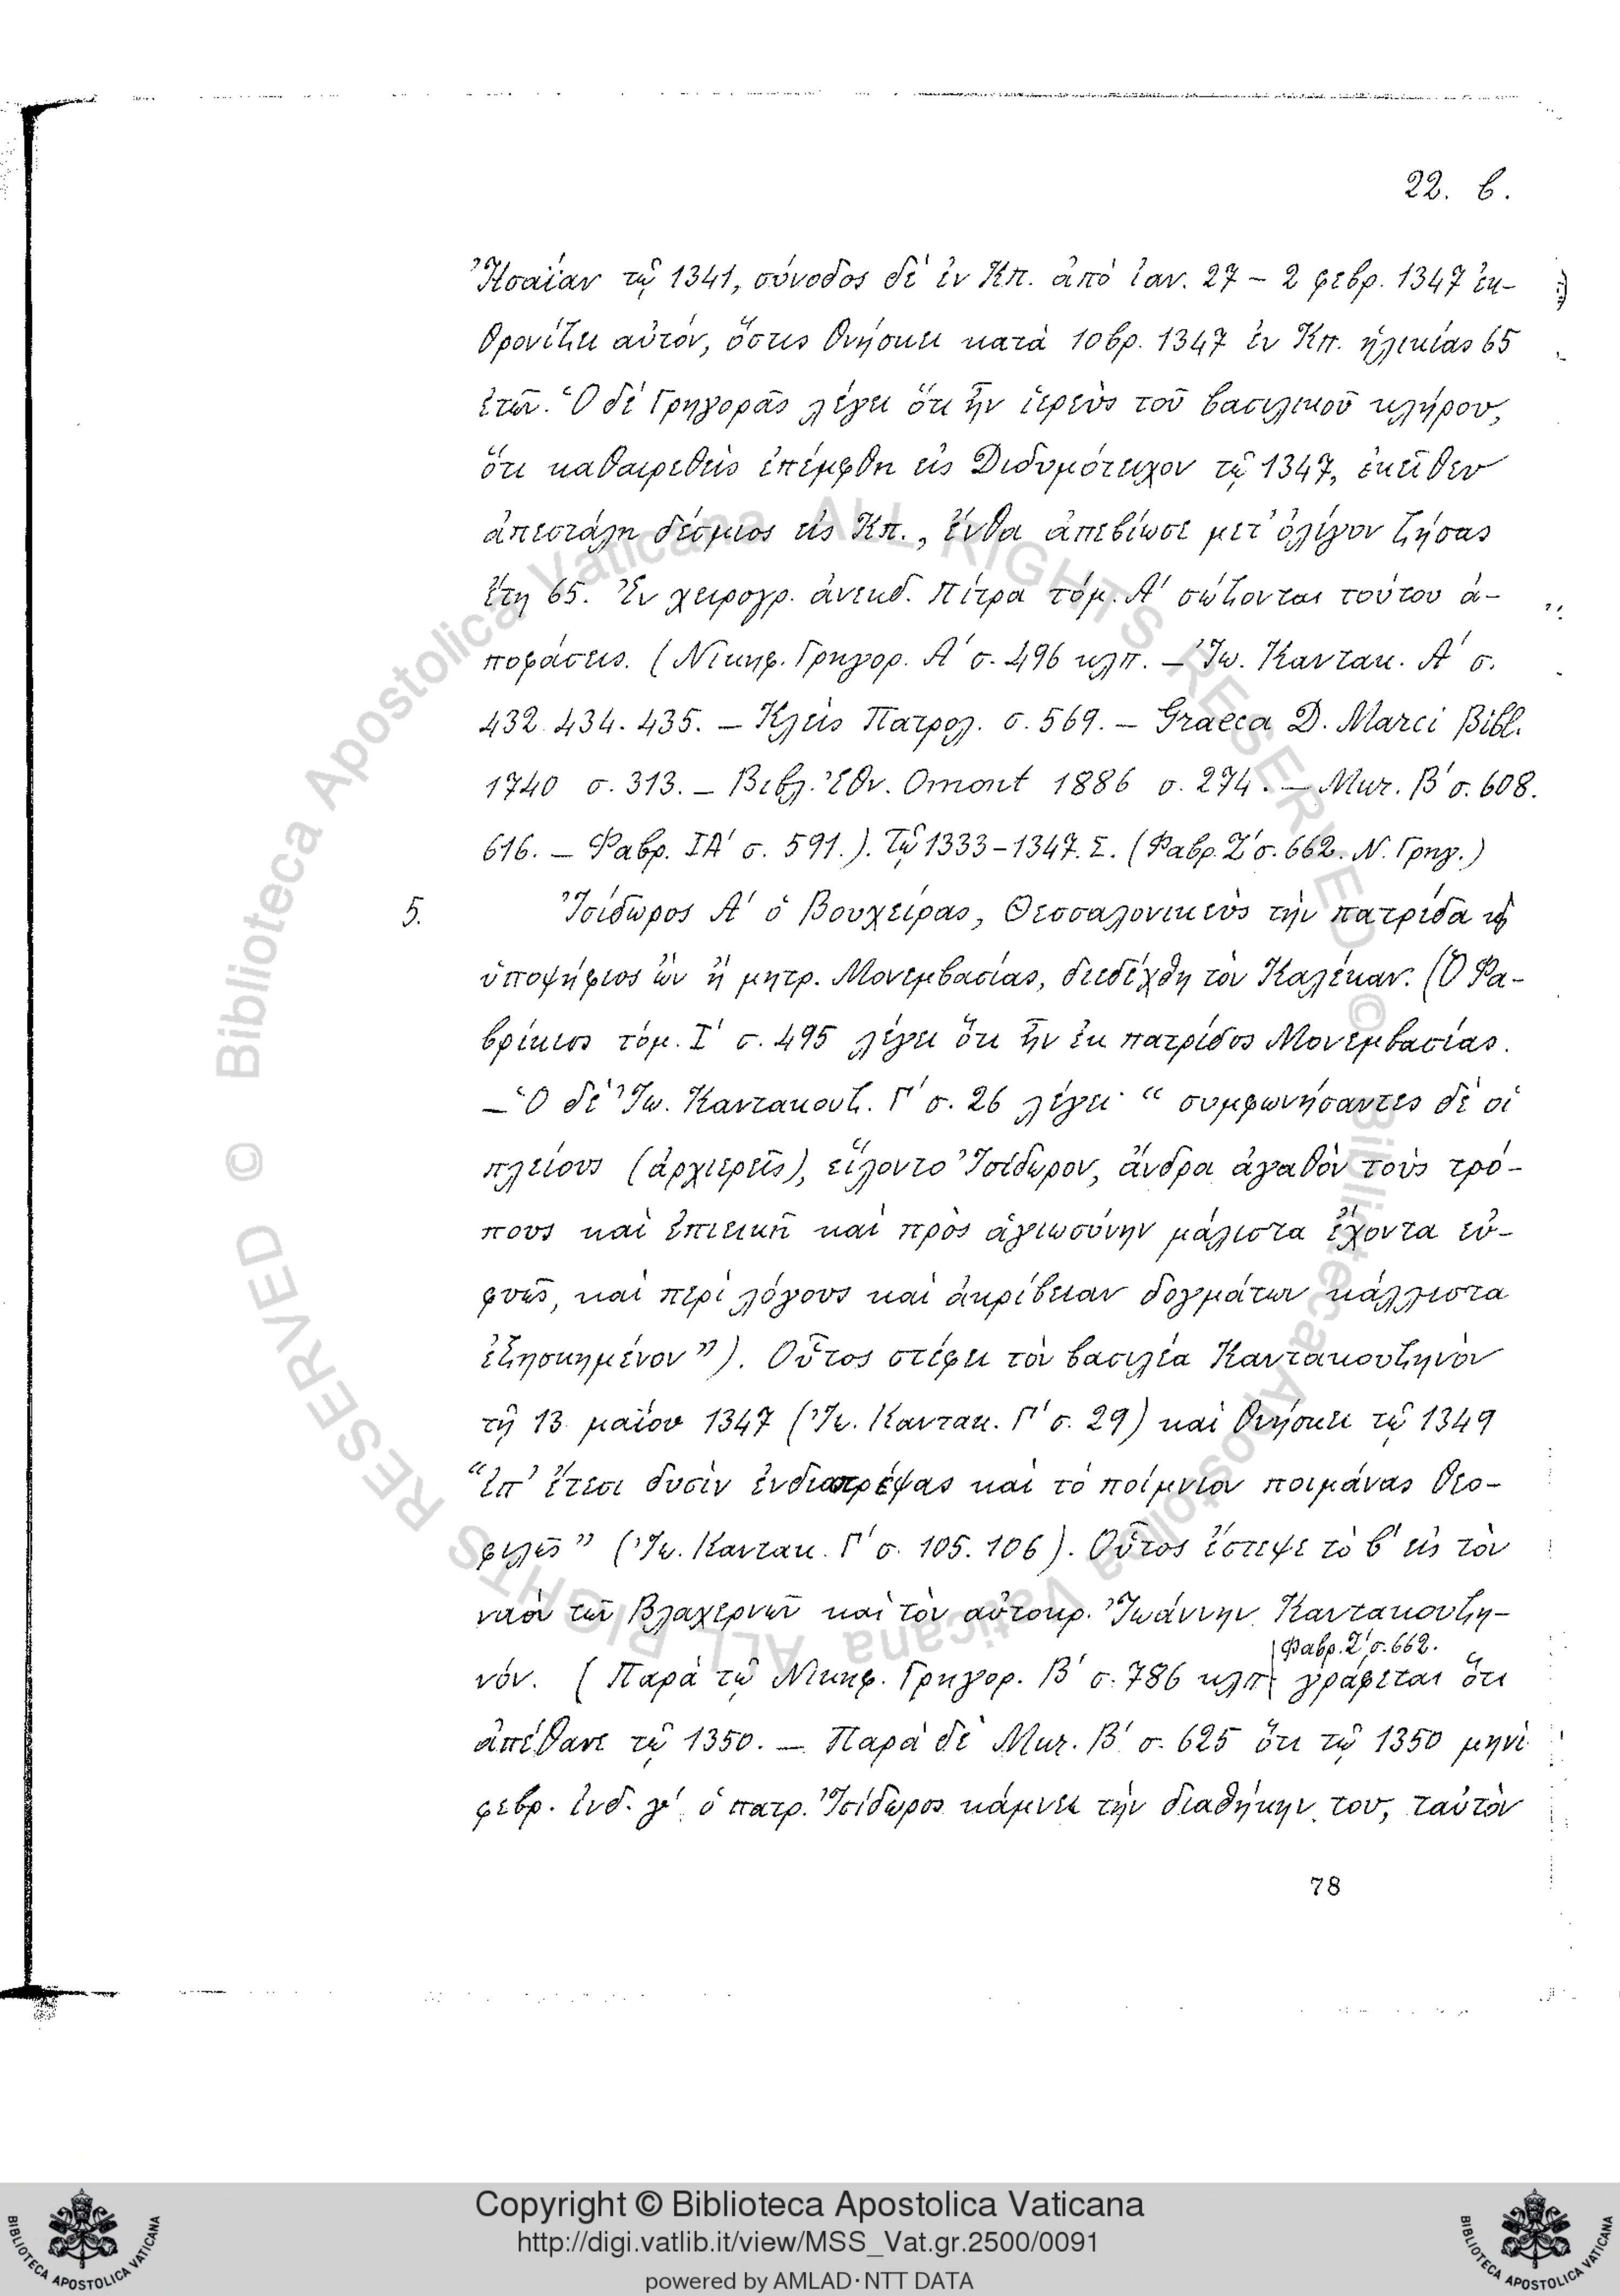 22. β.
Ἠσαΐαν τῷ 1341, σύνοδος δὲ ἐν Κπ. ἀπὸ ἰαν. 27 – 2 φεβρ. 1347 ἐκ-
θρονίζει αὐτόν, ὅστις θνήσκει κατὰ 10βρ. 1347 ἐν Κπ. ἡλικίας 65
ἐτῶν. Ὁ δὲ Γρηγορᾶς λέγει ὅτι ἦν ἱερεὺς τοῦ βασιλικοῦ κλήρου,
ὅτι καθαιρεθεὶς ἐπέμφθη εἰς Διδυμότειχον τῷ 1347, ἐκεῖθεν
ἀπεστάλη δέσμιος εἰς Κπ., ἔνθα ἀπεβίωσε μετ' ὀλίγον ζήσας
ἔτη 65. Ἐν χειρογρ. ἀνεκδ. Πίτρα τόμ. Α' σώζονται τούτου ἀ-
ποφάσεις. (Νικηφ. Γρηγορ. Α' σ. 496 κλπ. – Ἰω. Καντακ. Α' σ.
432. 434. 435. – Κλεὶς Πατρολ. σ. 569. – Graeca D. Marci Bibl.
1740 σ. 313. – Βιβλ. Ἐθν. Omont 1886 σ. 274. – Mur. Β' σ. 608.
616. – Φαβρ. ΙΑ' σ. 591.). Τῷ 1333–1347. Σ. (Φαβρ. Ζ' σ. 662. Ν. Γρηγ.)
5. Ἰσίδωρος Α' ὁ Βουχείρας, Θεσσαλονικεὺς τὴν πατρίδα
ὑποψήφιος ὢν ἢ μητρ. Μονεμβασίας, διεδέχθη τὸν Καλέκαν. (Ὁ Φα-
βρίκιος τόμ. Ι' σ. 495 λέγει ὅτι ἦν ἐκ πατρίδος Μονεμβασίας.
– Ὁ δὲ Ἰω. Καντακουζ. Γ' σ. 26 λέγει· “συμφωνήσαντες δὲ οἱ
πλείους (ἀρχιερεῖς), εἵλοντο Ἰσίδωρον, ἄνδρα ἀγαθὸν τοὺς τρό-
πους καὶ ἐπιεικῆ καὶ πρὸς ἁγιωσύνην μάλιστα ἔχοντα εὐ-
φυῶς, καὶ περὶ λόγους καὶ ἀκρίβειαν δογμάτων κάλλιστα
ἐξησκημένον”). Οὗτος στέφει τὸν βασιλέα Καντακουζηνὸν
τῇ 13 μαΐου 1347 (Ἰω. Καντακ. Γ' σ. 29) καὶ θνήσκει τῷ 1349
“ἐπ' ἔτεσι δυσὶν ἐνδιατρέψας καὶ τὸ ποίμνιον ποιμάνας θεο-
φιλῶς” (Ἰω. Καντακ. Γ' σ. 105. 106). Οὗτος ἔστεψε τὸ β' εἰς τὸν
ναὸν τῶν Βλαχερνῶν καὶ τὸν αὐτοκρ. Ἰωάννην Καντακουζη-
Φαβρ. Ζ' σ. 662.
νόν. (Παρὰ τῷ Νικηφ. Γρηγορ. Β' σ. 786 κλπ γράφεται ὅτι
ἀπέθανε τῷ 1350. – Παρὰ δὲ Mur. Β' σ. 625 ὅτι τῷ 1350 μηνὶ
φεβρ. ἰνδ. γ' ὁ πατρ. Ἰσίδωρος κάμνει τὴν διαθήκην του, ταὐτὸν
78
© Biblioteca Apostolica Vaticana ALL RIGHTS RESERVED
© Biblioteca Apostolica Vaticana ALL RIGHTS RESERVED
Copyright © Biblioteca Apostolica Vaticana
http://digi.vatlib.it/view/MSS_Vat.gr.2500/0091
powered by AMLAD·NTT DATA
BIBLIOTECA APOSTOLICA VATICANA
BIBLIOTECA APOSTOLICA VATICANA